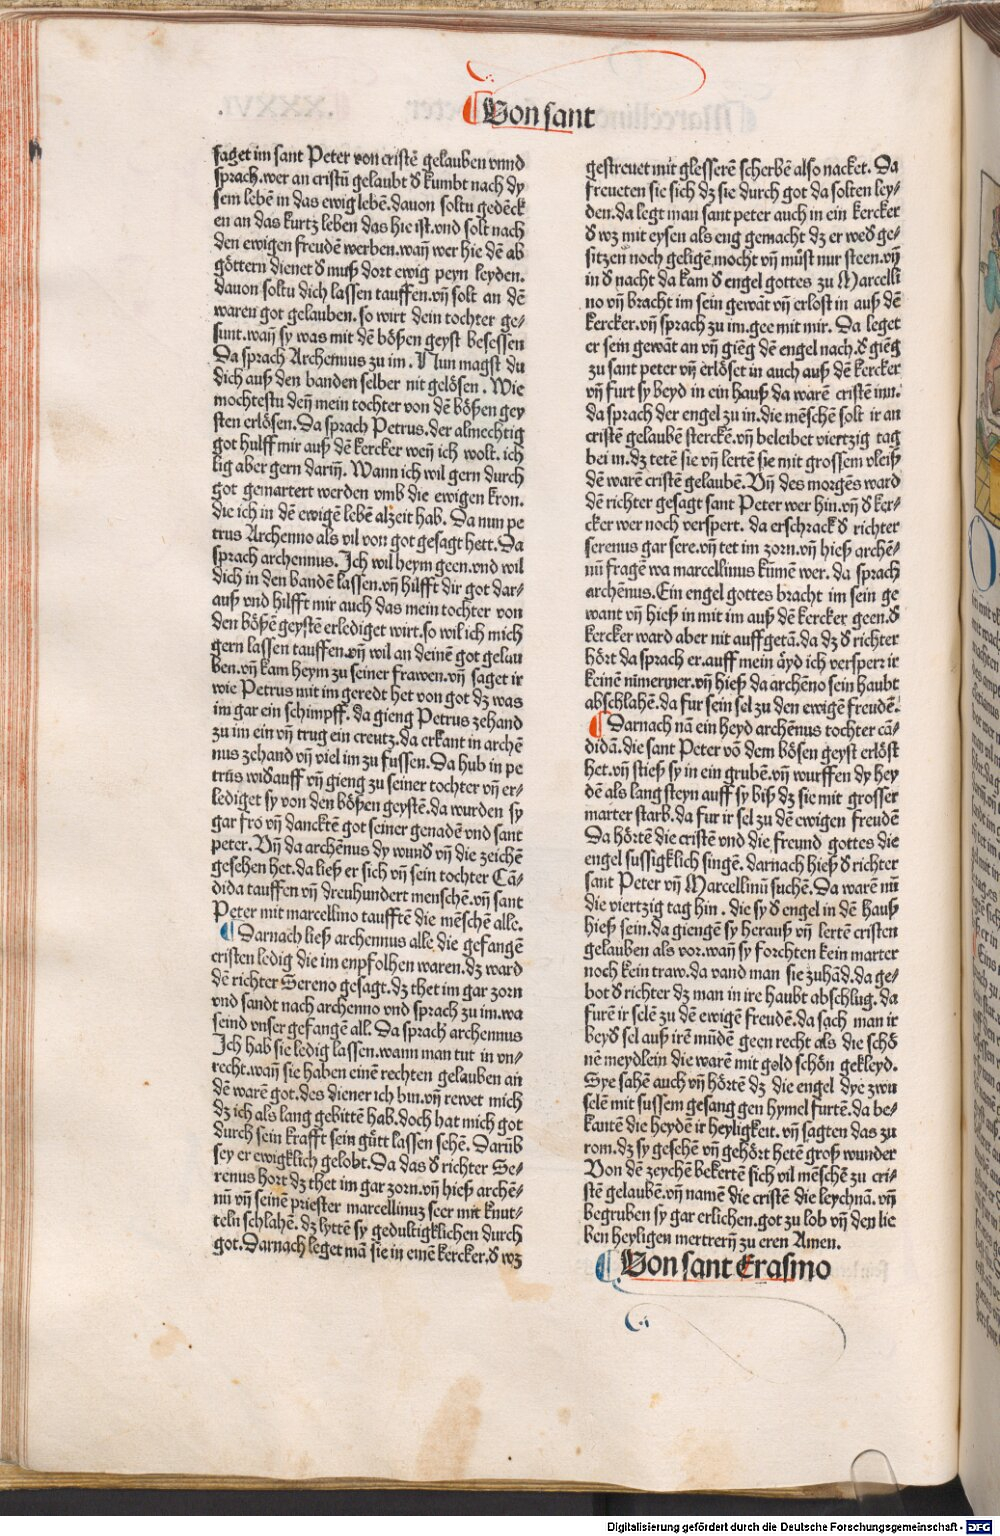 Von sant
saget im sant Peter von cristē gelauben vnnd
sprach. wer an cristū gelaubt đ kumbt nach dy
sem lebē in das ewig lebē. dauon soltu gedēck
en an das kurtz leben das hie ist. vnd solt nach
den ewigen freudē werben. wañ wer hie dē ab
göttern dienet đ muß dort ewig peyn leyden.
dauon soltu dich lassen tauffen. vñ solt an dē
waren got gelauben. so wirt dein tochter ge⸗
sunt. wañ sy was mit dē bößen geyst besessen
Da sprach Archemius zu im. Nun magst du
dich auß den banden selber nit gelösen. Wie
mochtestu deñ mein tochter von dē bößen gey
sten erlösen. Da sprach Petrus. der almechtig
got hulff mir auß dē kercker weñ ich wolt. ich
lig aber gern dariñ. Wann ich wil gern durch
got gemartert werden vmb die ewigen kron.
die ich in dē ewigē lebē alzeit hab. Da nun pe
trus Archenno als vil von got gesagt hett. Da
sprach archennus. Ich wil heym geen. vnd wil
dich in den bandē lassen. vñ hilfft dir got dar⸗
auß vnd hilfft mir auch das mein tochter von
den bößē geystē erlediget wirt. so wil ich mich
gern lassen tauffen. vñ wil an deinē got gelau
ben. vñ kam heym zu seiner frawen. vñ saget ir
wie Petrus mit im geredt het von got dz was
im gar ein schimpff. da gieng Petrus zehand
zu im ein vñ trug ein creutz. da erkant in archē
nus zehand vñ viel im zu fussen. Da hub in pe
trus widauff vñ gieng zu seiner tochter vñ er⸗
lediget sy von den bößen geystē. da wurden sy
gar fro vñ danckte got seiner genadē vnd sant
peter. Vñ da archēnus dy wunđ vñ die zeichē
gesehen het. da ließ er sich vñ sein tochter Cā⸗
dida tauffen vñ dreuhundert menschē. vñ sant
Peter mit marcellino taufftē die mēschē alle.
Darnach ließ archennus alle die gefangē
cristen ledig die im enpfolhen waren. dz ward
dē richter Sereno gesagt. dz thet im gar zorn
vnd sandt nach archenno vnd sprach zu im. wa
seind vnser gefangē all. Da sprach archennus
Ich hab sie ledig lassen. wann man tut in vn⸗
recht. wañ sie haben einē rechten gelauben an
dē warē got. des diener ich bin. vñ rewet mich
dz ich als lang gebittē hab. doch hat mich got
durch sein krafft sein gütt lassen sehē. Darūb
sey er ewigklich gelobt. Da das đ richter Se⸗
renus hort dz thet im gar zorn. vñ hieß archē⸗
nū vñ seinē priester marcellinuz seer mit knut⸗
teln schlahē. dz lyttē sy gedultigklichen durch
got. Darnach leget mā sie in einē kercker. đ wz
gestreuet mit glesserē scherbē also nacket. Da
freueten sie sich dz sie durch got da solten ley⸗
den. da legt man sant peter auch in ein kercker
đ wz mit eysen als eng gemacht dz er weđ ge⸗
sitzen noch geligē mocht vñ můst nur steen. vñ
in đ nacht da kam đ engel gottes zu Marcelli
no vñ bracht im sein gewāt vñ erlost in auß dē
kercker. vñ sprach zu im. gee mit mir. Da leget
er sein gewāt an vñ giēg dē engel nach. đ giēg
zu sant peter vñ erlöset in auch auß dē kercker
vñ furt sy beyd in ein hauß da warē cristē inn.
da sprach der engel zu in. die mēschē solt ir an
cristē gelaubē sterckē. vñ beleibet viertzig tag
bei in. dz tetē sie vñ lertē sie mit grossem vleiß
dē warē cristē gelaubē. Vñ des morgēs ward
dē richter gesagt sant Peter wer hin. vñ đ ker⸗
cker wer noch verspert. da erschrack đ richter
serenus gar sere. vñ tet im zorn. vñ hieß archē⸗
nū fragē wa marcellinus kūmē wer. da sprach
archēnus. Ein engel gottes bracht im sein ge
want vñ hieß in mit im auß dē kercker geen. đ
kercker ward aber nit auffgetā. da dz đ richter
hört da sprach er. auff mein äyd ich versperr ir
keinē nimermer. vñ hieß da archēno sein haubt
abschlahē. da fur sein sel zu den ewigē freudē.
Darnach nā ein heyd archēnus tochter cā⸗
didā. die sant Peter vō dem bösen geyst erlöst
het. vñ stieß sy in ein grubē. vñ wurffen dy hey
dē als lang steyn auff sy biß dz sie mit grosser
marter starb. da fur ir sel zu dē ewigen freudē
Da hörtē die cristē vnd die freund gottes die
engel sussigklich singē. darnach hieß đ richter
sant Peter vñ Marcellinū suchē. Da warē nū
die viertzig tag hin. die sy đ engel in dē hauß
hieß sein. da giengē sy herauß vñ lertē cristen
gelauben als vor. wañ sy forchten kein marter
noch kein traw. da vand man sie zuhād. da ge⸗
bot đ richter dz man in ire haubt abschlug. da
furē ir selē zu dē ewigē freudē. da sach man ir
beyđ sel auß irē mūdē geen recht als die schö
nē meydlein die warē mit gold schön gekleyd.
Sye sahē auch vñ hörtē dz die engel dye zwu
selē mit sussem gesang gen hymel furtē. da be⸗
kantē die heydē ir heyligkeit. vñ sagten das zu
rom. dz sy gesehē vñ gehört hetē groß wunder
Von dē zeychē bekertē sich vil mēschē zu cri⸗
stē gelaubē. vñ namē die cristē die leychnā. vñ
begruben sy gar erlichen. got zu lob vñ den lie
ben heyligen mertrerñ zu eren Amen.
Von sant Erasmo
Digitalisierung gefördert durch die Deutsche Forschungsgemeinschaft - DFG